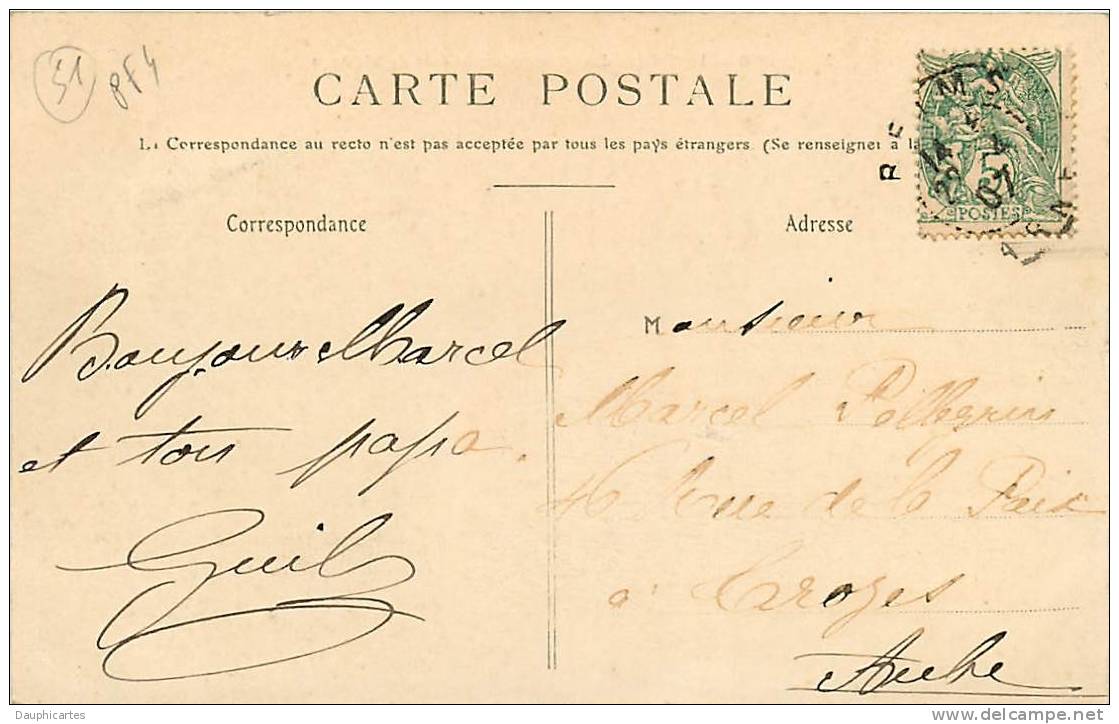 51
8F4
CARTE POSTALE
La Correspondance au recto n'est pas acceptée par tous les pays étrangers (Se renseigner à la
5
POSTES
REIMS
07
Correspondance
Bonjour Marcel
et ton papa.
Adresse
Monsieur
Marcel Pellegrin
46 Rue de la Paix
à Troyes
Aube
Dauphicartes
www.delcampe.net